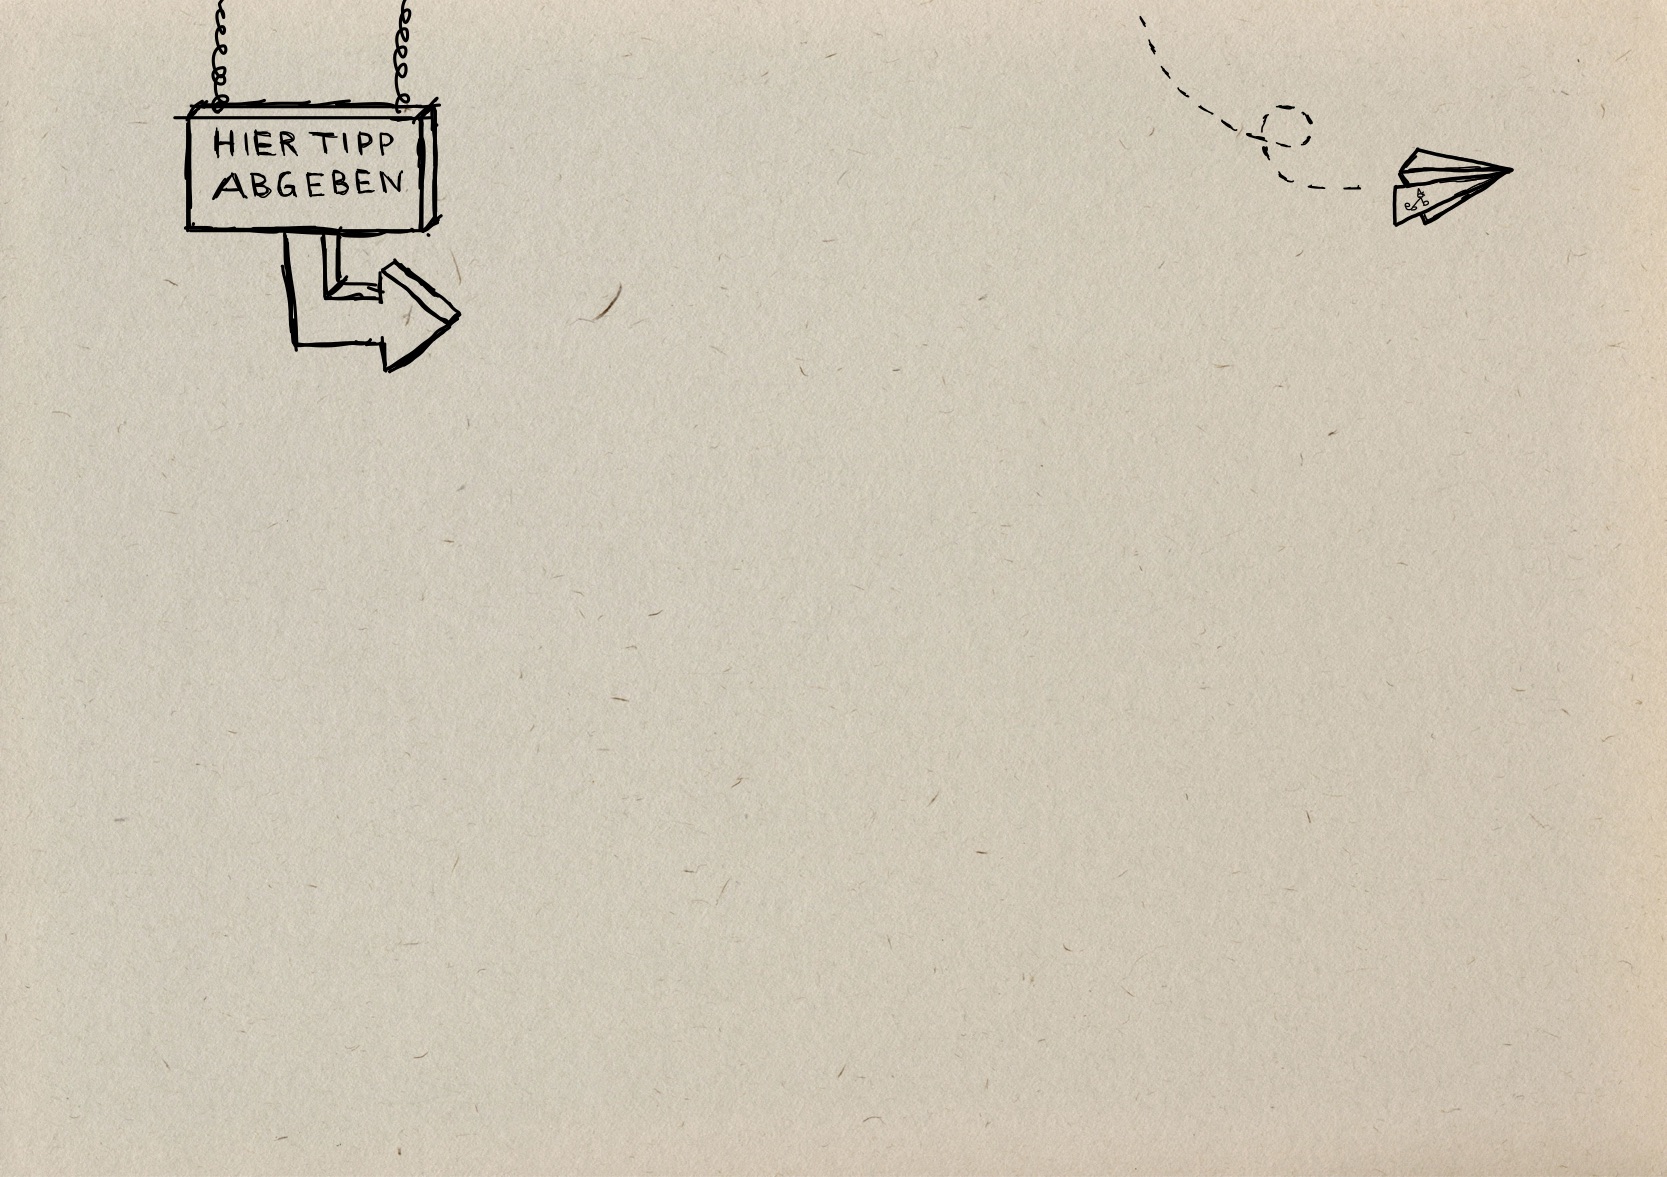 HIER TIPP
ABGEBEN